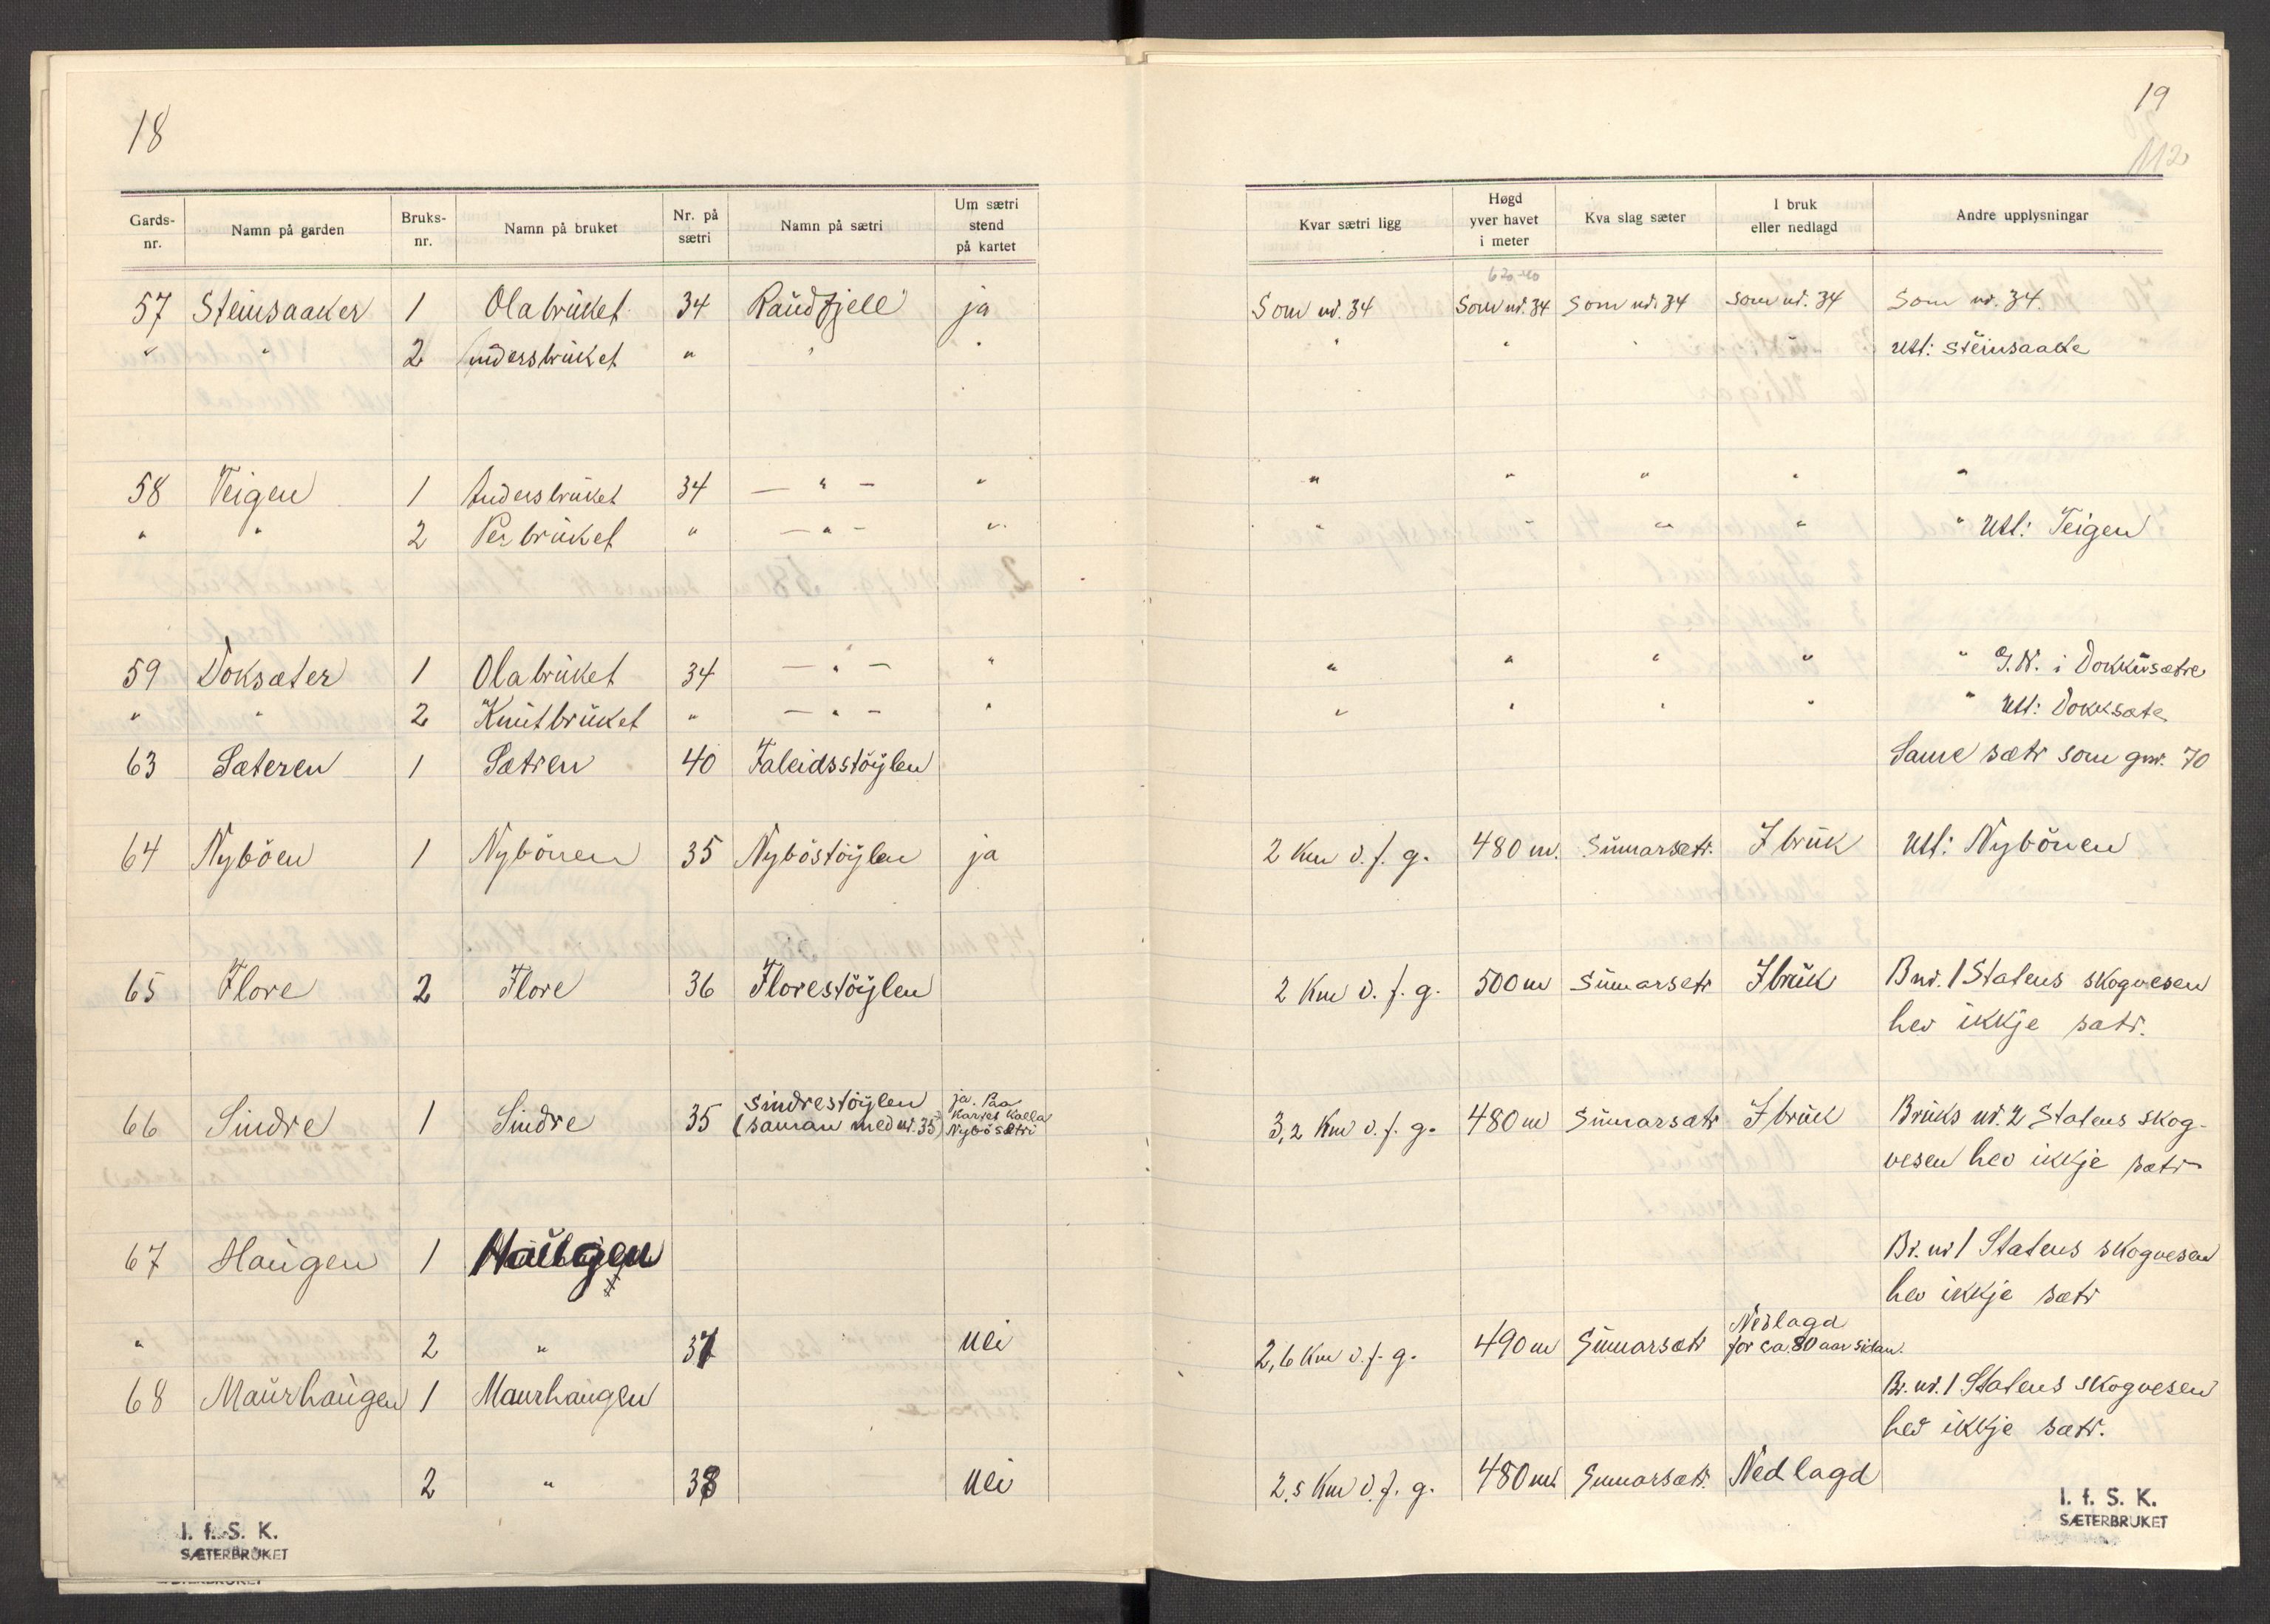 18
Gards-nr. Namn på garden Bruks-nr. Namn på bruket Nr. på sætri Namn på sætri Um sætri stend på kartet
57 Steinsaaker 1 Olabrŭket 34 Raŭdfjell ja
" " 2 Andersbrŭket " " "
58 Teigen 1 Andersbrŭket 34 — " — "
" " 2 Perbrŭket " — " — "
59 Doksæter 1 Olabrŭket 34 — " — "
" " 2 Knŭtbrŭket " — " — "
63 Sæteren 1 Sætren 40 Faleidsstöylen
64 Nyböen 1 Nybönen 35 Nyböstöylen ja
65 Flore 2 Flore 36 Florestöylen
66 Sindre 1 Sindre 35 Sindrestöylen (saman med nr. 35) ja. Paa kartet kalla Nybösætri
67 Haŭgen 1 Haŭgen
" 2 " 37 nei
68 Maŭrhaŭgen 1 Maurhaŭgen
2 " 38 nei
I. f. S. K.
SÆTERBRUKET
19
112
Kvar sætri ligg Høgd yver havet i meter Kva slag sæter I bruk eller nedlagd Andre upplysningar
620-40
Som nr. 34 Som nr. 34 Som nr. 34 Som nr. 34 Som nr. 34.
" " " " Utt: Steinsaake
" " " " "
" " " " " Utt: Teigen
" " " " " G.N. i Dokkŭsætre
" " " " " Utt: Dokksæte
Same sætr som gnr. 70
2 Km v. f. g. 480 m. Sŭmarsætr. I brŭk Utt: Nybönen
2 Km v. f. g. 500 m Sŭmarsetr I brŭk Bnr. 1 Statens skogvesen
hev ikkje sætr.
3,2 Km v. f. g. 480 m Sŭmarsætr I brŭk Brŭks nr. 2 Statens skog-
vesen hev ikkje sætr
Br. nr 1 Statens skogvesen
hev ikkje sætr
2,6 Km v. f. g. 490 m Sŭmarsætr Nedlagd for ca. 80 aar sidan.
Br. nr. 1 Statens skogvesen
hev ikkje sætr.
2,5 Km v. f. g. 480 m Sŭmarsætr. Nedlagd
I. f. S. K.
SÆTERBRUKET